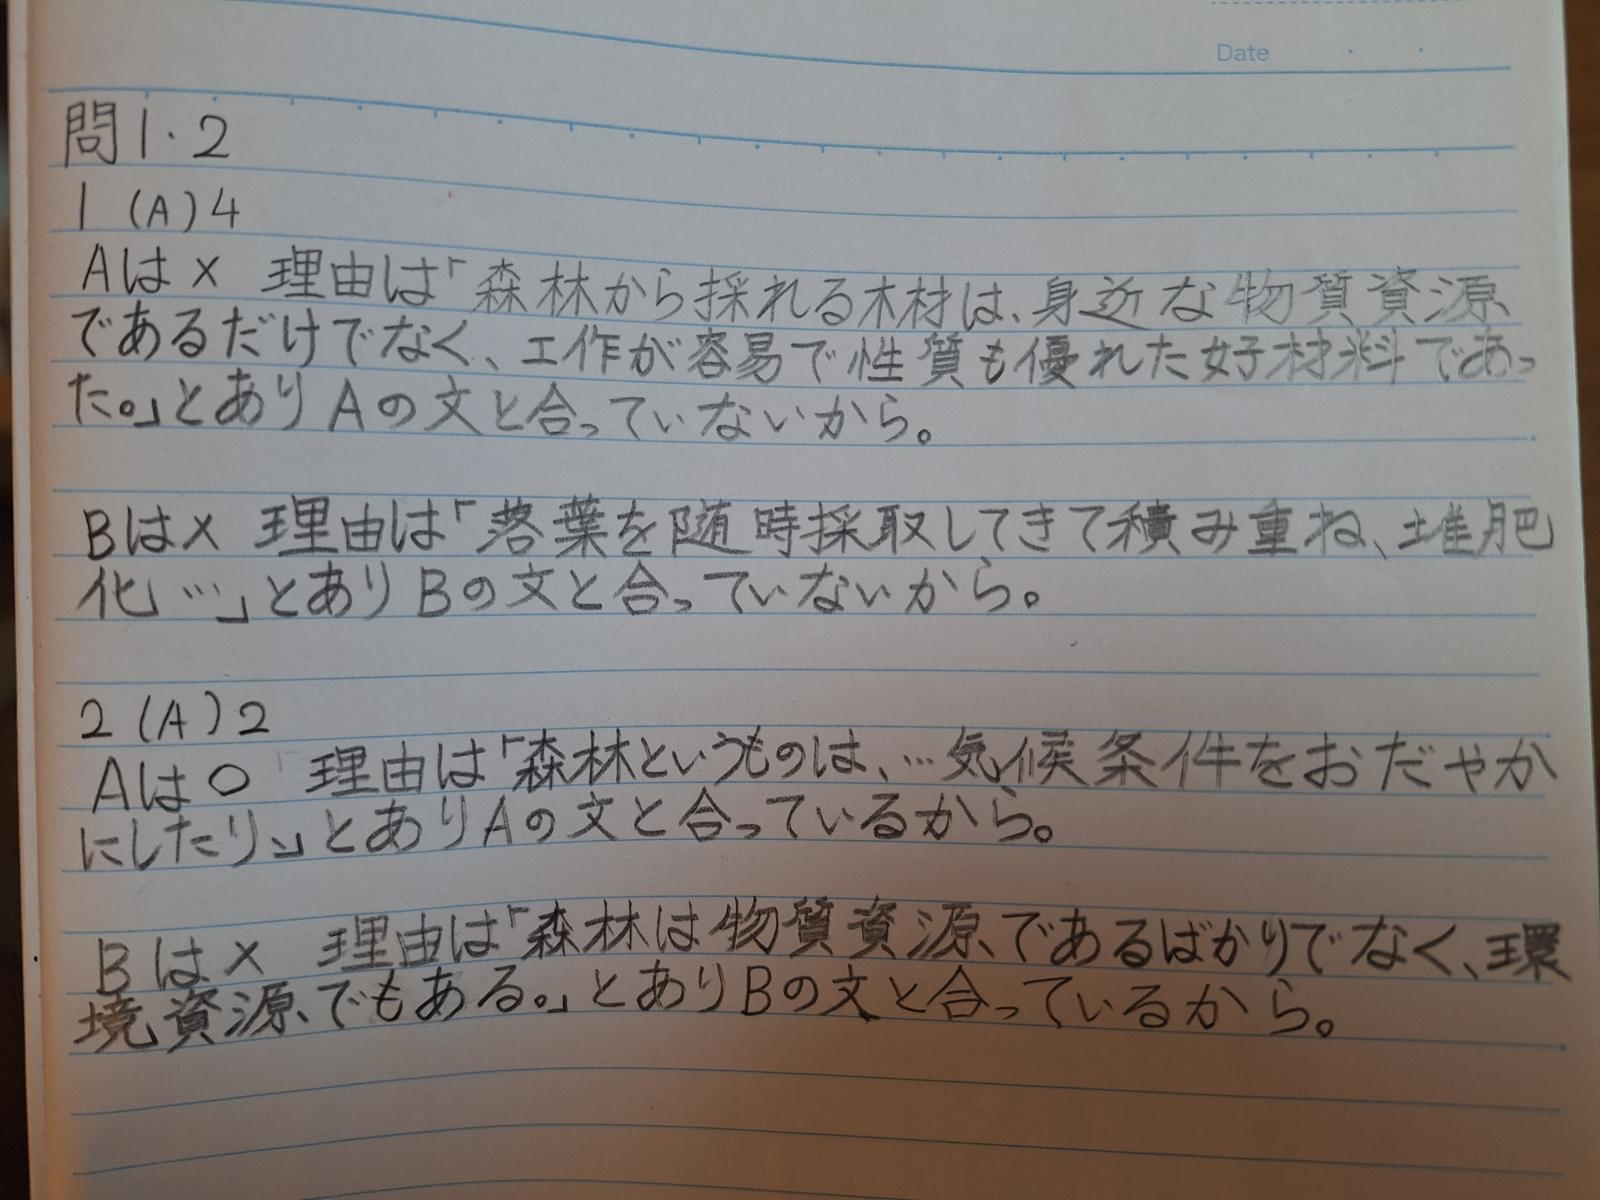 Date
問1・2
1 (A)4
Aは× 理由は「森林から採れる木材は、身近な物質資源
であるだけでなく、工作が容易で性質も優れた好材料であっ
た。」とありAの文と合っていないから。
Bは× 理由は「落葉を随時採取してきて積み重ね、堆肥
化…」とありBの文と合っていないから。
2 (A)2
Aは○ 理由は「森林というものは、…気候条件をおだやか
にしたり、」とありAの文と合っているから。
Bは× 理由は「森林は物質資源であるばかりでなく、環
境資源でもある。」とありBの文と合っているから。